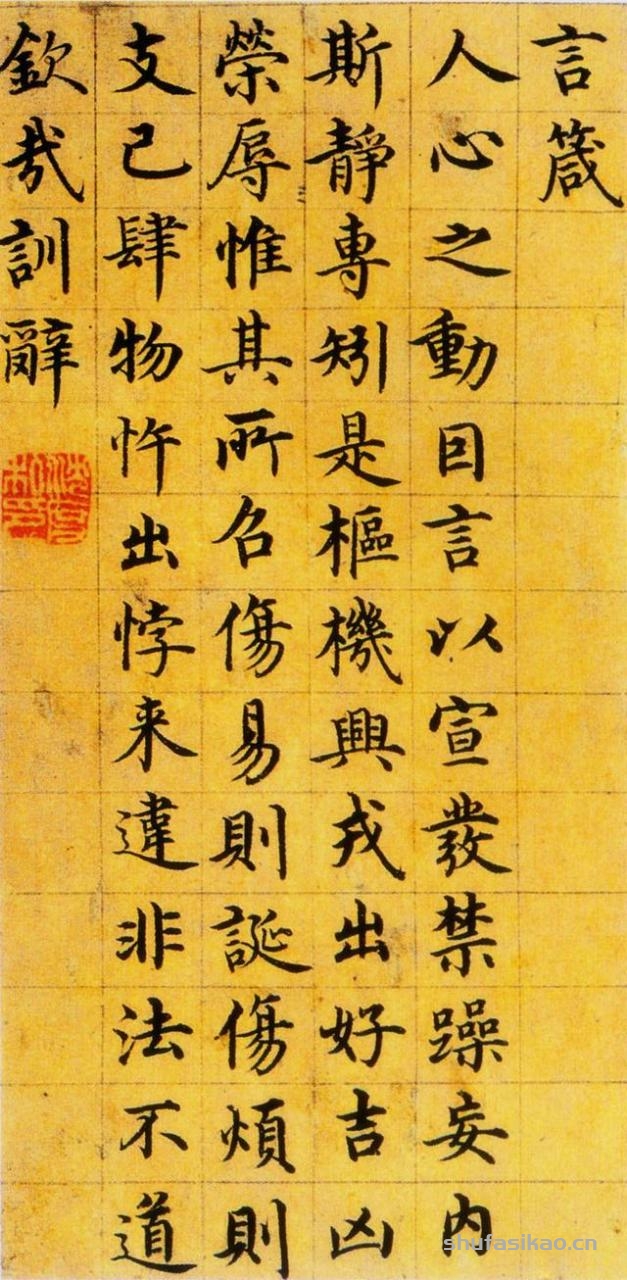 言箴
人心之動因言以宣發禁躁妄内
斯靜專矧是樞機興戎出好吉凶
榮辱惟其所召傷易則誕傷煩則
支己肆物忤出悖来違非法不道
欽哉訓辭
shufasikao.cn